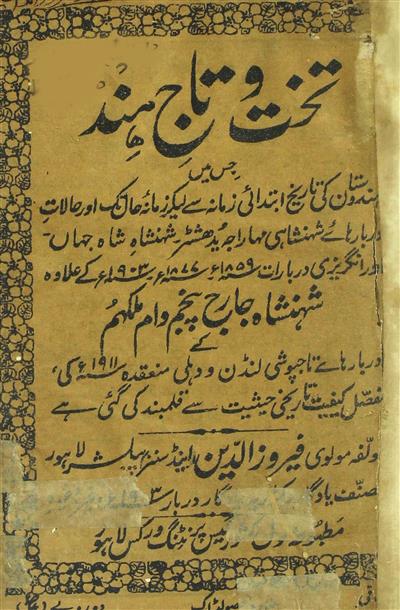 تخت و تاجِ ہند
جس میں
ہندوستان کی تاریخ ابتدائی زمانہ سے لیکر زمانۂ حال تک اور حالات
دربارہائے شہنشاہی مہاراجہ یدھشٹر شہنشاہ شاہ جہاں
اور انگریزی دربارات ۱۸۵۹ء، ۱۸۷۷ء، ۱۹۰۳ء کے علاوہ
شہنشاہ جارج پنجم دام ملکہم
کے
دربارہائے تاجپوشی لنڈن و دہلی منعقدہ ۱۹۱۱ء کی
مفصل کیفیت تاریخی حیثیت سے قلمبند کی گئی ہے
مولفہ مولوی فیروز الدین اینڈ سنز پبلشر لاہور
مصنف یادگار دربار ۱۹۰۳
پرنٹنگ ورکس لاہور